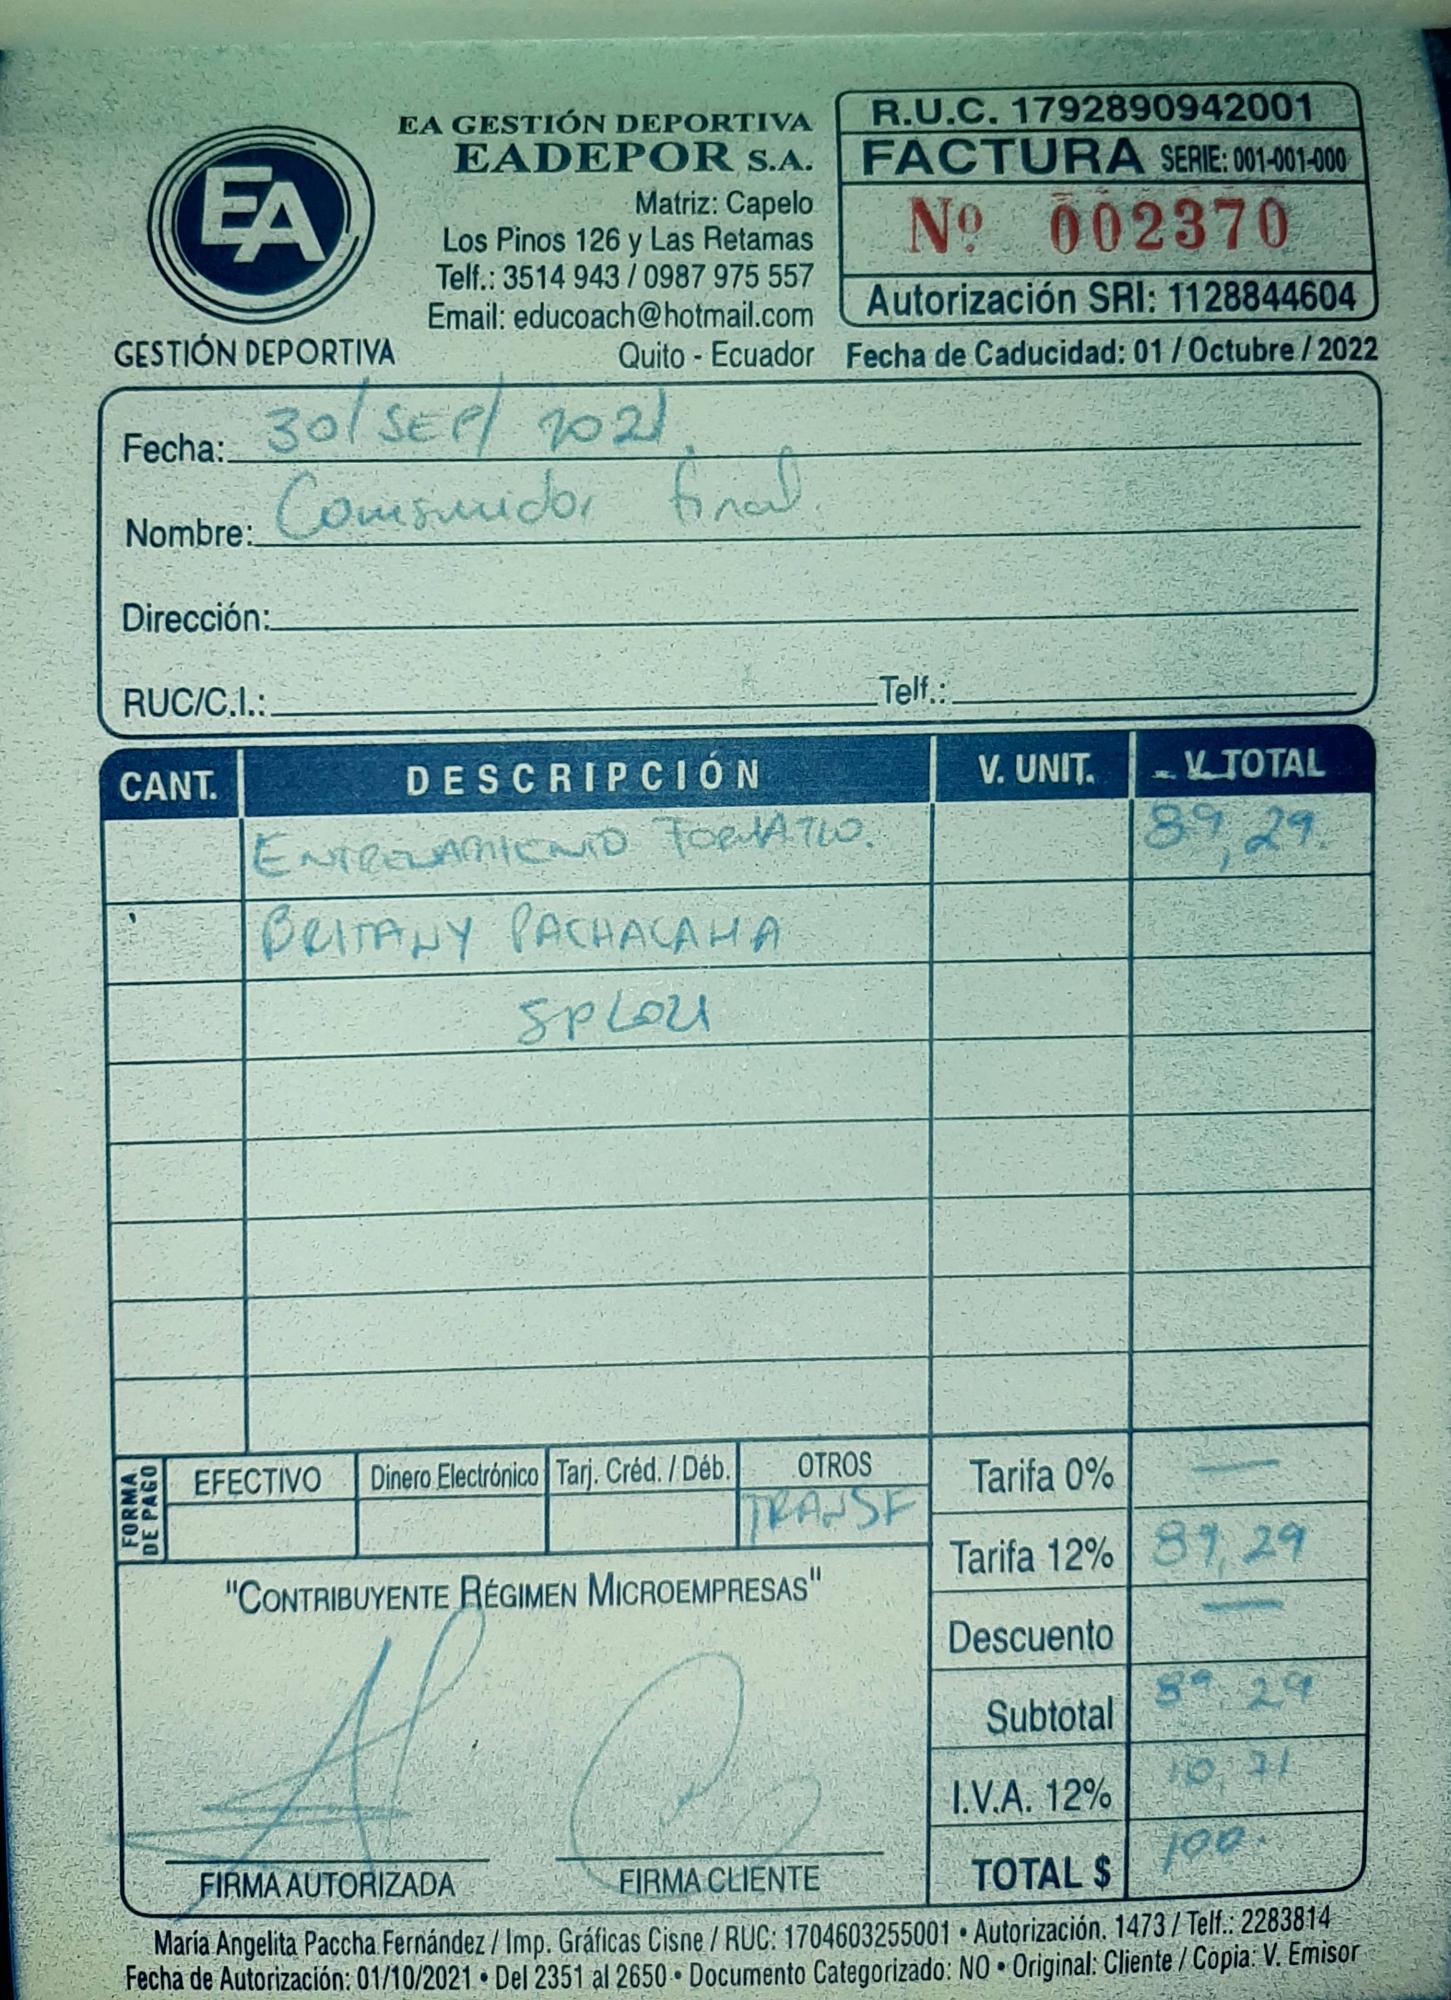 EA
GESTIÓN DEPORTIVA
EA GESTIÓN DEPORTIVA
EADEPOR S.A.
Matriz: Capelo
Los Pinos 126 y Las Retamas
Telf.: 3514 943 / 0987 975 557
Email: educoach@hotmail.com
Quito - Ecuador
R.U.C. 1792890942001
FACTURA SERIE: 001-001-000
Nº 002370
Autorización SRI: 1128844604
Fecha de Caducidad: 01 / Octubre / 2022
Fecha: 30/SEP/2021
Nombre: Consumidor final.
Dirección:
RUC/C.I.: Telf.:
CANT. DESCRIPCIÓN V. UNIT. V. TOTAL
ENTRENAMIENTO 89,29.
BRITANY PACHACAMA
FORMA DE PAGO
EFECTIVO Dinero Electrónico Tarj. Créd. / Déb. OTROS
TRANSF
Tarifa 0% —
Tarifa 12% 89,29
Descuento —
Subtotal 89,29
I.V.A. 12% 10,71
TOTAL $ 100.
"CONTRIBUYENTE RÉGIMEN MICROEMPRESAS"
FIRMA AUTORIZADA FIRMA CLIENTE
María Angelita Paccha Fernández / Imp. Gráficas Cisne / RUC: 1704603255001 • Autorización. 1473 / Telf.: 2283814
Fecha de Autorización: 01/10/2021 • Del 2351 al 2650 • Documento Categorizado: NO • Original: Cliente / Copia: V. Emisor